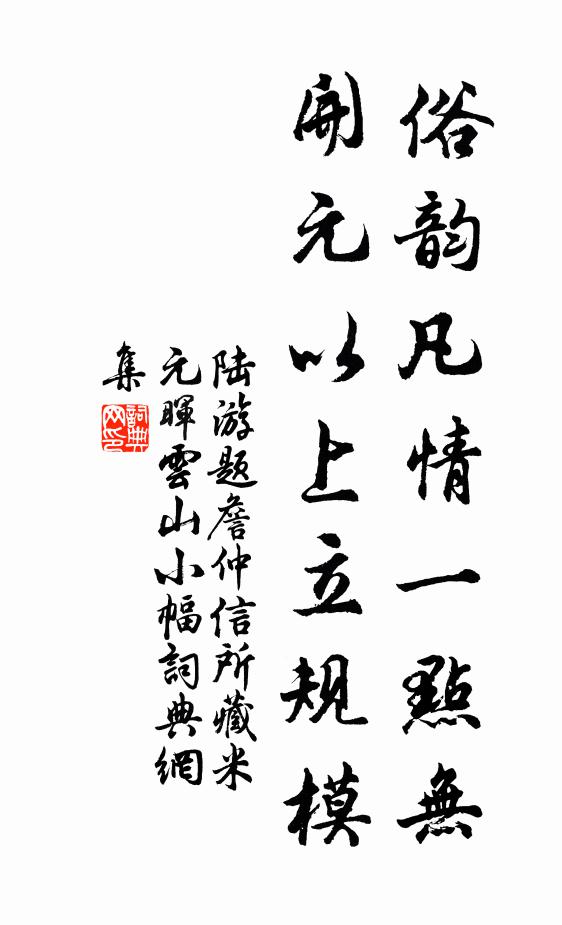 俗韵凡情一點無
開元以上立規模
陸游题詹仲信所藏米
元暉雲山小幅詞典網
集
詞典网印